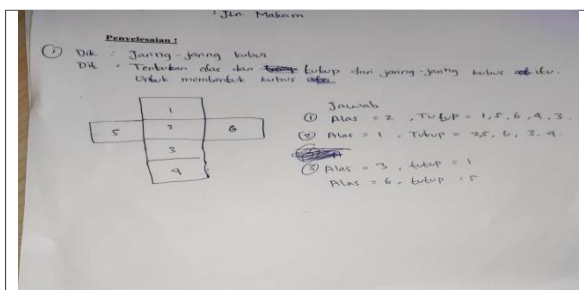 : Jln. Makam
Penyelesaian :
① Dik : Jaring-jaring kubus
Dit : Tentukan alas dan tutup dari jaring-jaring kubus itu.
Untuk membentuk kubus
1
5 2 6
3
4
Jawab
① Alas = 2 , Tutup = 1, 5, 6, 4, 3.
② Alas = 1 , Tutup = 2,5, 6, 3, 4.
③ Alas = 3 , tutup = 1
Alas = 6 , tutup = 5